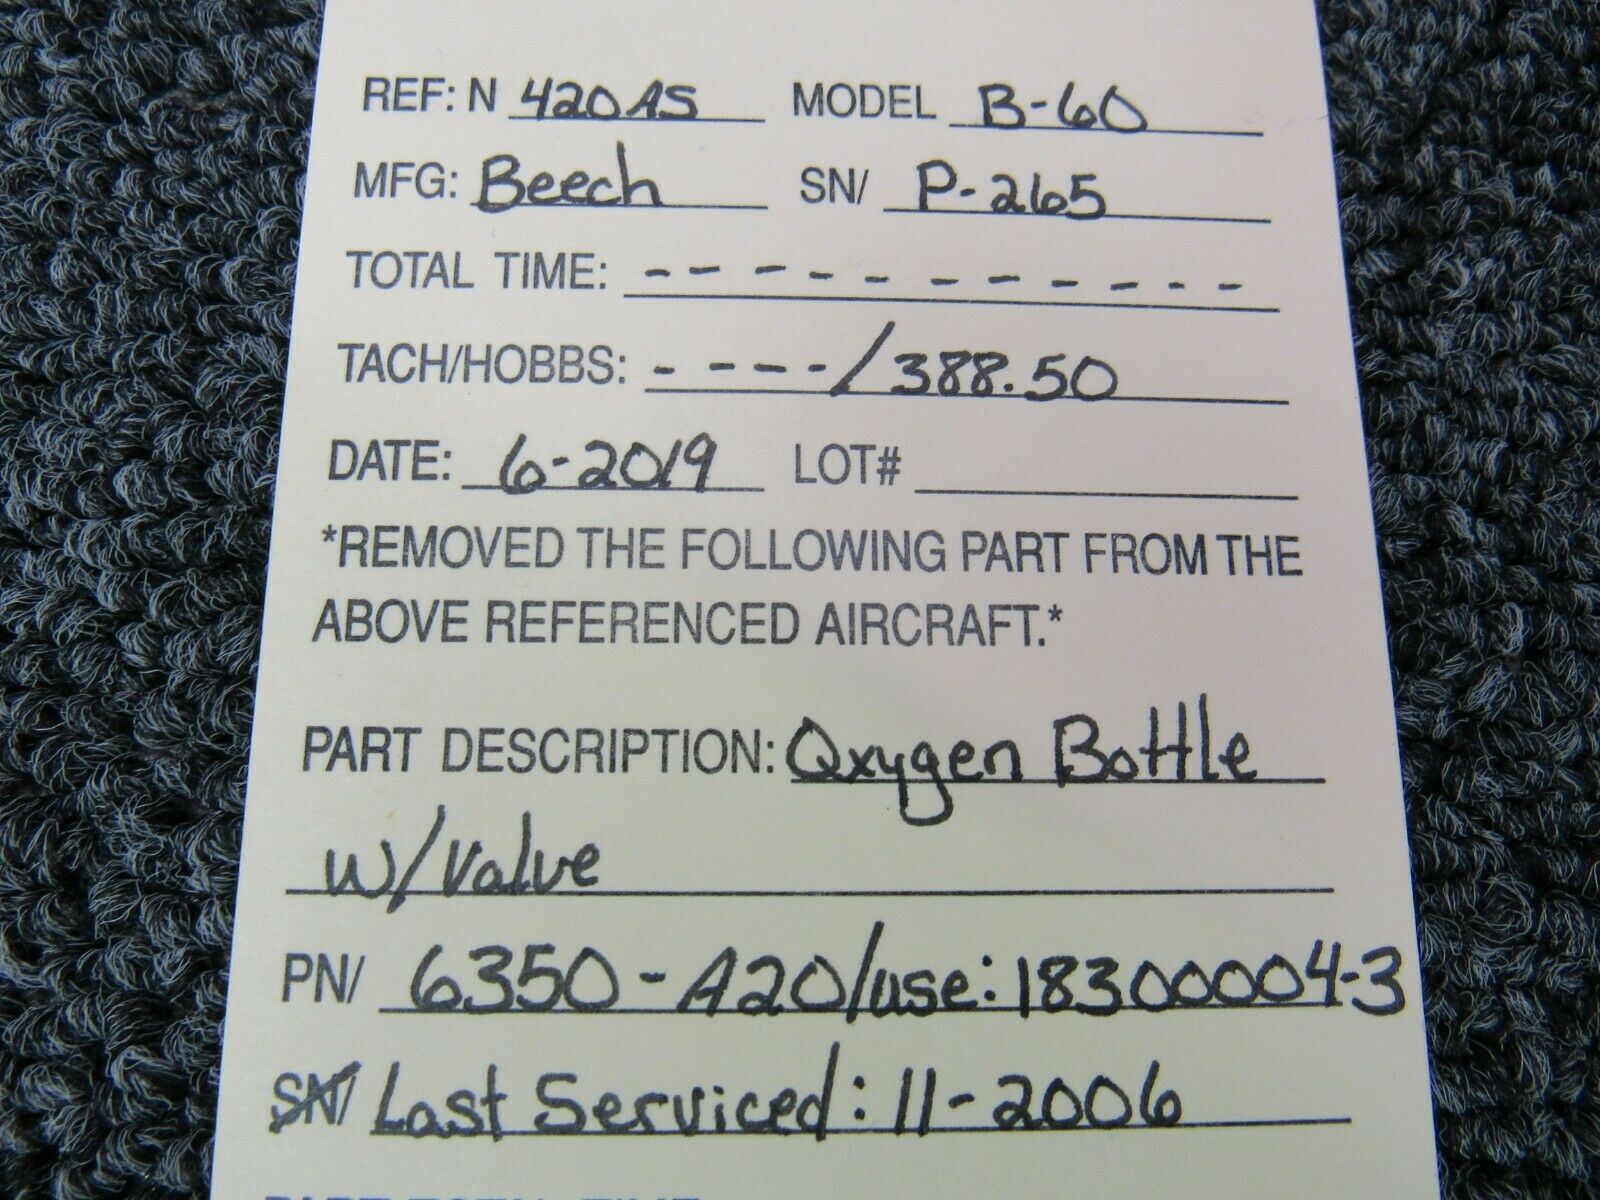 REF: N 420AS MODEL B-60
MFG: Beech SN/ P-265
TOTAL TIME: - - - - - - - - - - -
TACH/HOBBS: - - - - / 388.50
DATE: 6-2019 LOT#
*REMOVED THE FOLLOWING PART FROM THE
ABOVE REFERENCED AIRCRAFT.*
PART DESCRIPTION: Oxygen Bottle
w/valve
PN/ 6350-A20/use: 18300004-3
SN/ Last Serviced: 11-2006
PART TOTAL TIME